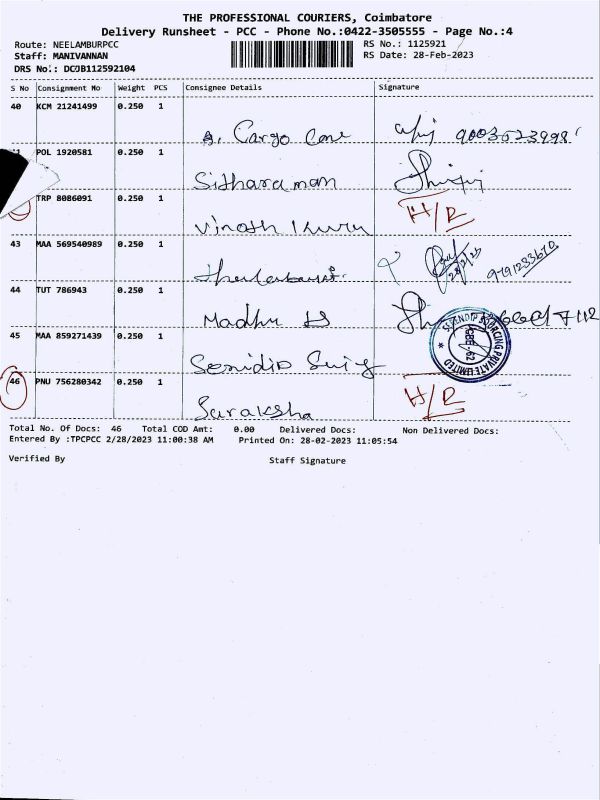 THE PROFESSIONAL COURIERS, Coimbatore
Delivery Runsheet - PCC - Phone No.:0422-3505555 - Page No.:4
Route: NEELAMBURPCC
RS No.: 1125921
Staff: MANIVANNAN
RS Date: 28-Feb-2023
DRS No.: DCOB112592104
S No Consignment No Weight PCS Consignee Details Signature
40 KCM 21241499 0.250 1
A. Cargo Care 9003523998
POL 1920581 0.250 1
Sitharaman
TRP 8086091 0.250 1 H/R
Vinoth
43 MAA 569540989 0.250 1
9791233610
44 TUT 786943 0.250 1
Madhu
45 MAA 859271439 0.250 1
PRIVATE LIMITED
46 PNU 756280342 0.250 1 H/R
Suraksha
Total No. Of Docs: 46 Total COD Amt: 0.00 Delivered Docs: Non Delivered Docs:
Entered By :TPCPCC 2/28/2023 11:00:38 AM Printed On: 28-02-2023 11:05:54
Verified By Staff Signature